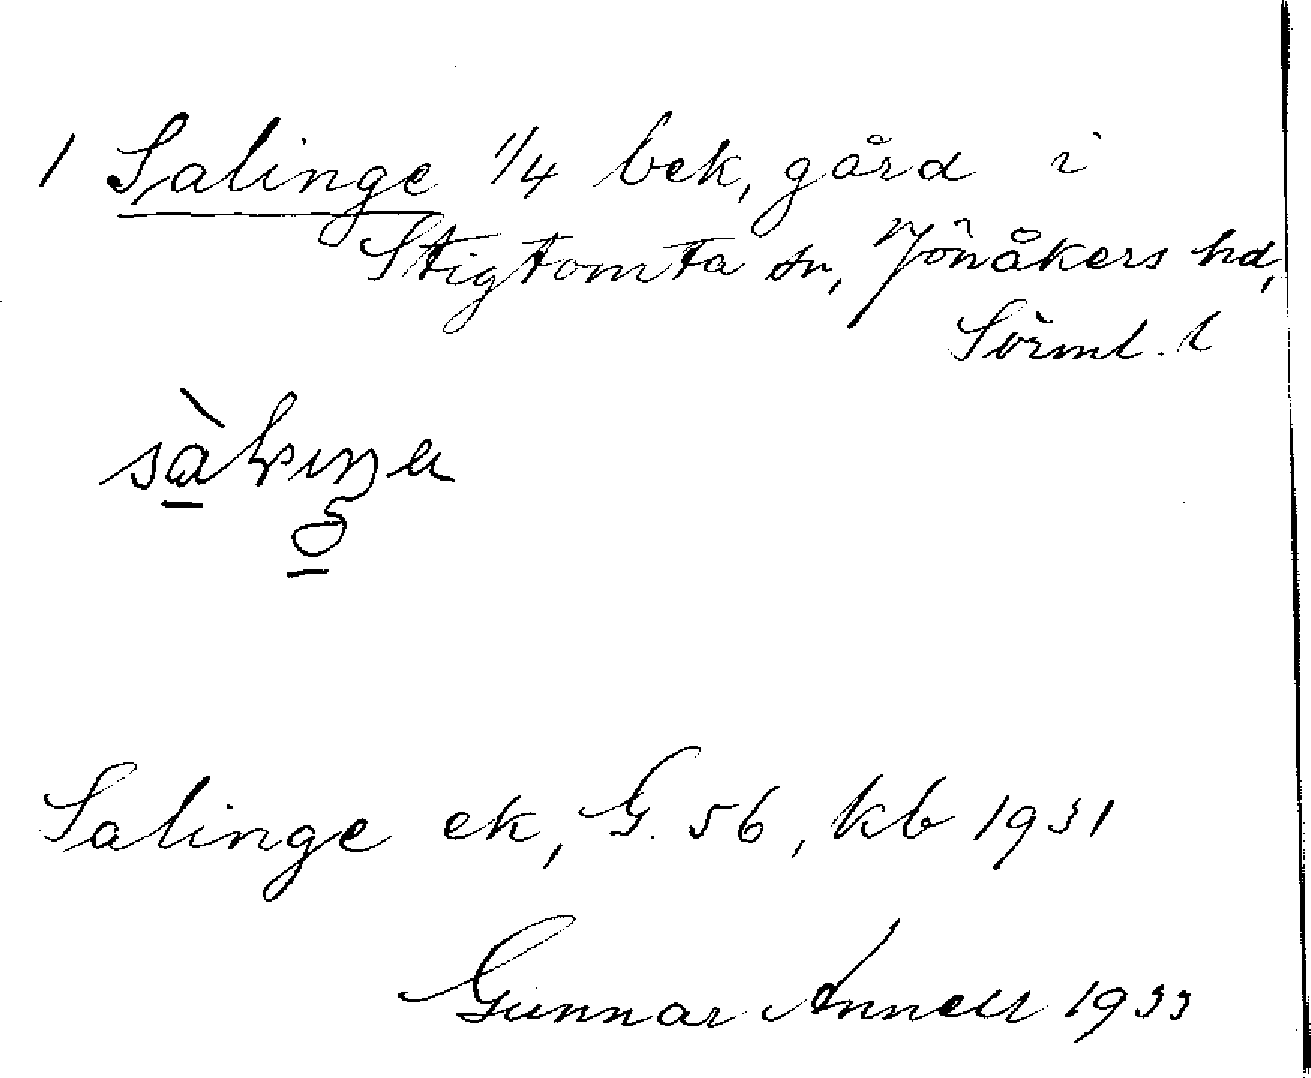 1 Salinge 1/4 bek, gård i
Stigtomta sn, Jönåkers hd,
Sörml. l
Salinge ek, G. 56, kb 1931
Gunnar Annell 1933